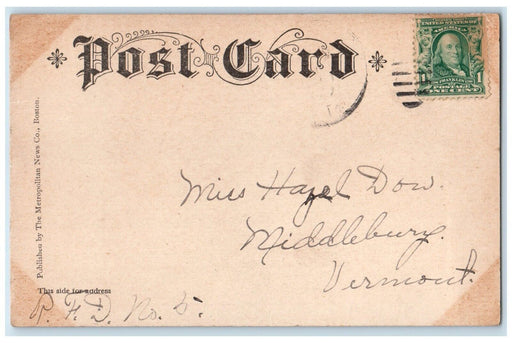 Post Card
UNITED STATES OF
AMERICA
1 FRANKLIN 1
POSTAGE
ONE CENT
Published by The Metropolitan News Co., Boston.
Miss Hazel Dow.
Middlebury.
Vermont.
This side for address
R. F. D. No. 5.